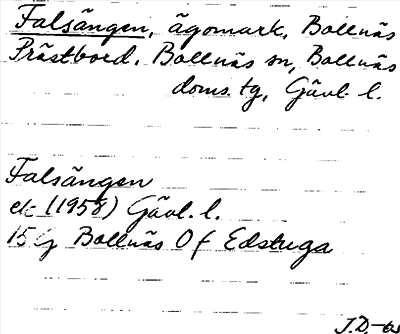 Falsängen, ägomark, Bollnäs
Prästbord, Bollnäs sn, Bollnäs
doms. tg, Gävl. l.
Falsängen
ek (1958) Gävl. l.
15G Bollnäs Of Edstuga
J.D.-63